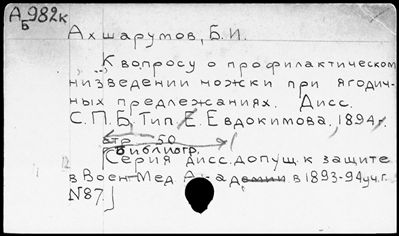 А 982к
Б
Ахшарумов, Б. И.
К вопросу о профилактическом
низведении ножки при ягодич-
ных предлежаниях. Дисс.
С.П.Б. Тип. Е. Евдокимова, 1894г.
стр. 50
библиогр.
[Серия дисс. допущ. к защите
в Воен. Мед. Академии в 1893-94 уч. г.
N87.]